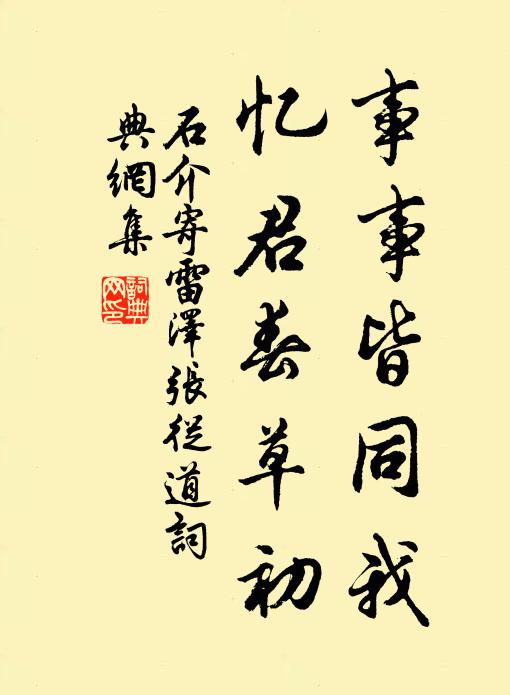 事事皆同我
忆君春草初
石介寄雷澤張從道詞
典網集
詞典
网印